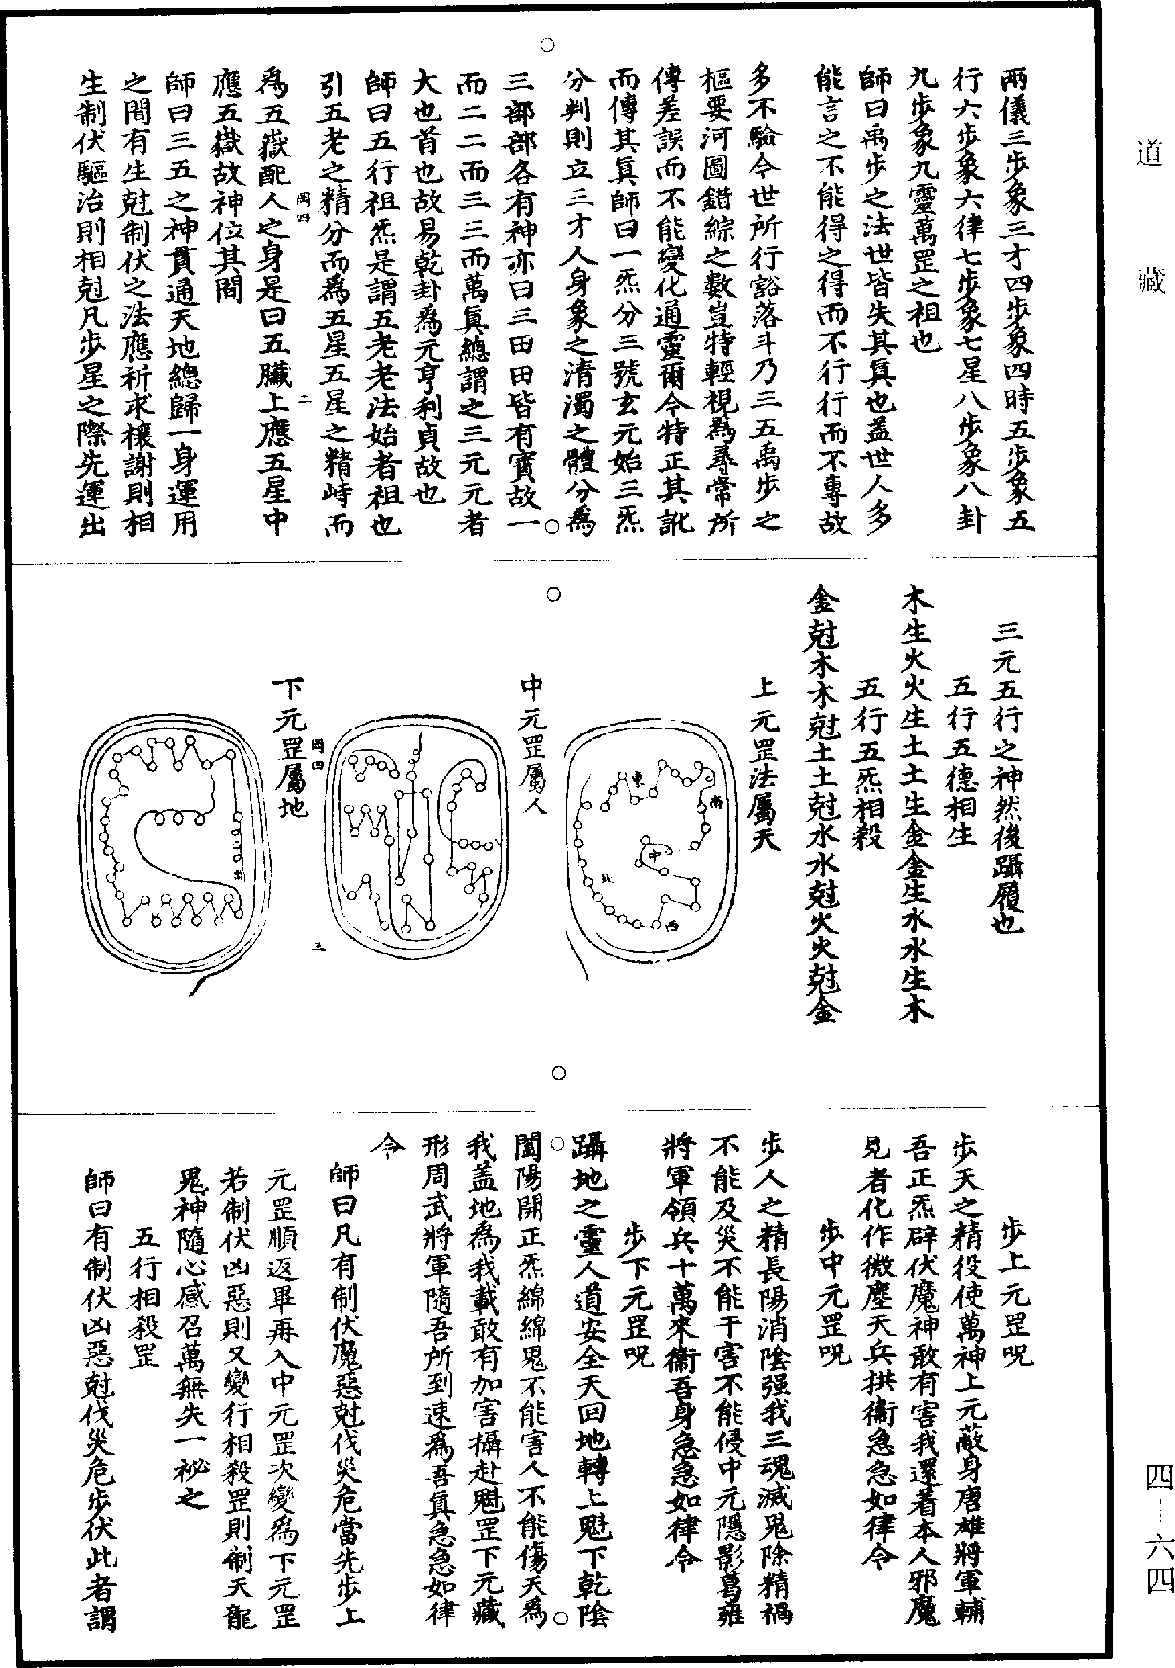 道藏
兩儀三步象三才四步象四時五步象五
行六步象六律七步象七星八步象八卦
九步象九靈萬罡之祖也
師曰禹步之法世皆失其真也蓋世人多
能言之不能得之得而不行行而不專故
多不驗今世所行豁落斗乃三五禹步之
樞要河圖錯綜之數豈特輕視為尋常所
傳差誤而不能變化通靈爾今特正其訛
而傳其真師曰一炁分三號玄元始三炁
分判則立三才人身象之清濁之體分為
三部部各有神亦曰三田田皆有寶故一
而二二而三三而萬真總謂之三元元者
大也首也故易乾卦為元亨利貞故也
師曰五行祖炁是謂五老老法始者祖也
引五老之精分而為五星五星之精峙而
為五嶽配人之身是曰五臟上應五星中
岡四
二
應五嶽故神位其間
師曰三五之神貫通天地總歸一身運用
之間有生尅制伏之法應祈求禳謝則相
生制伏驅治則相尅凡步星之際先運出
三元五行之神然後躡履也
五行五德相生
木生火火生土土生金金生水水生木
五行五炁相殺
金尅木木尅土土尅水水尅火火尅金
上元罡法屬天
東
南
中
北
西
中元罡屬人
岡四
三
下元罡屬地
步上元罡呪
步天之精役使萬神上元蔽身唐雄將軍輔
吾正炁辟伏魔神敢有害我還著本人邪魔
見者化作微塵天兵拱衛急急如律令
步中元罡呪
步人之精長陽消陰强我三魂滅鬼除精禍
不能及災不能干害不能侵中元隱影葛雍
將軍領兵十萬來衛吾身急急如律令
步下元罡呪
躡地之靈人道安全天回地轉上魁下乾陰
闔陽開正炁綿綿鬼不能害人不能傷天為
我蓋地為我載敢有加害攝赴魁罡下元藏
形周武將軍隨吾所到速為吾真急急如律
令
師曰凡有制伏魔惡尅伐災危當先步上
元罡順返畢再入中元罡次變為下元罡
若制伏凶惡則又變行相殺罡則制天龍
鬼神隨心感召萬無失一祕之
五行相殺罡
師曰有制伏凶惡尅伐災危步伏此者謂
四—六四